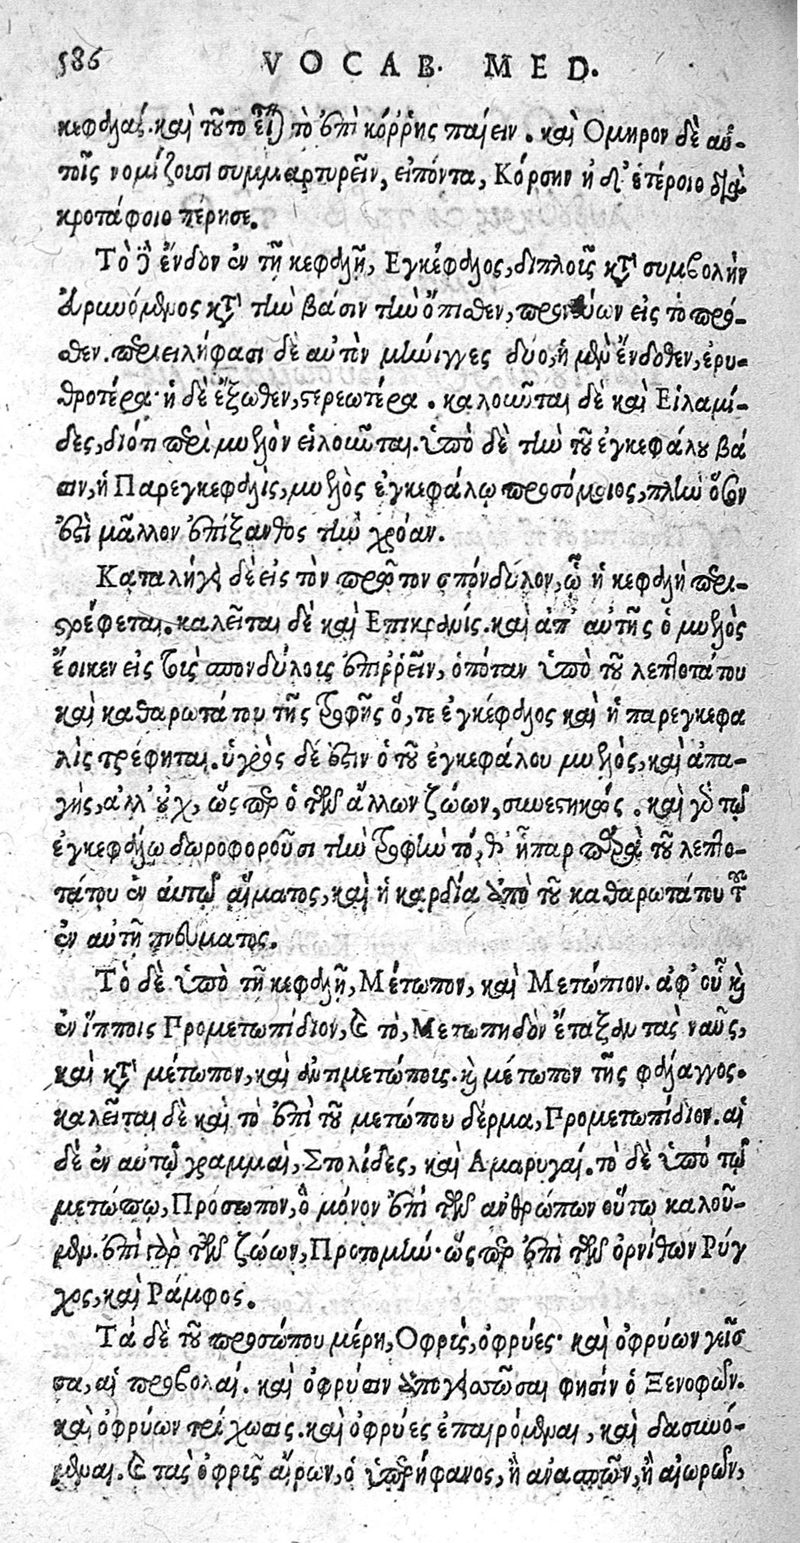 586 VOCAB. MED.
κεφαλαί. καὶ τοῦτο εἶναι τὸ ἐπὶ κόρρης παίειν. καὶ Ομηρον δὲ αὐ-
τοῖς νομίζουσι συμμαρτυρεῖν, εἰπόντα, Κόρσην ἡ δ' ἑτέροιο διὰ
κροτάφοιο πέρησε.
Τὸ δὲ ἔνδον ἐν τῇ κεφαλῇ, Εγκέφαλος, διπλοῖς κατὰ συμβολὴν
ἀρχόμενος κατὰ τὴν βάσιν τὴν ὄπισθεν, προνεύων εἰς τὸ πρό-
σθεν. περιειλήφασι δὲ αὐτὸν μήνιγγες δύο, ἡ μὲν ἔνδοθεν, ἐρυ-
θροτέρα· ἡ δὲ ἔξωθεν, στερεωτέρα. καλοῦνται δὲ καὶ Εἰλαμί-
δες, διότι περὶ μυελὸν εἰλοῦνται. ὑπὸ δὲ τὴν τοῦ ἐγκεφάλου βά
σιν, ἡ Παρεγκεφαλὶς, μυελὸς ἐγκεφάλῳ προσόμοιος, πλὴν ὅσον
ἐστὶ μᾶλλον ἐπίξανθος τὴν χρόαν.
Καταλήγει δὲ εἰς τὸν πρῶτον σπόνδυλον, ᾧ ἡ κεφαλὴ περι-
στρέφεται. καλεῖται δὲ καὶ Επικρανίς. καὶ ἀπ' αὐτῆς ὁ μυελὸς
ἔοικεν εἰς τοὺς σπονδύλοις ἐπιρρεῖν, ὁπόταν ὑπὸ τοῦ λεπτοτάτου
καὶ καθαρωτάτου τῆς τροφῆς ὅ, τε ἐγκέφαλος καὶ ἡ παρεγκεφα
λὶς τρέφηται. ὑγρὸς δέ ἐστιν ὁ τοῦ ἐγκεφάλου μυελὸς, καὶ ἀπα-
γής, ἀλλ' οὐχ, ὥσπερ ὁ τῶν ἄλλων ζώων, συνεστηκώς. καὶ γὰρ τῷ
ἐγκεφάλῳ δωροφοροῦσι τὴν τροφὴν τό, θ' ἧπαρ παρὰ τοῦ λεπτο-
τάτου ἐν αὐτῷ αἵματος, καὶ ἡ καρδία ἀπὸ τοῦ καθαρωτάτου τοῦ
ἐν αὐτῇ πνεύματος.
Τὸ δὲ ὑπὸ τῇ κεφαλῇ, Μέτωπον, καὶ Μετώπιον. ἀφ' οὗ καὶ
ἐν ἵπποις Προμετωπίδιον, καὶ τὸ, Μετωπηδὸν ἔταξαν τὰς ναῦς,
καὶ κατὰ μέτωπον, καὶ ἀντιμετώποις. καὶ μέτωπον τῆς φάλαγγος.
καλεῖται δὲ καὶ τὸ ἐπὶ τοῦ μετώπου δέρμα, Προμετωπίδιον. αἱ
δὲ ἐν αὐτῷ γραμμαὶ, Στολίδες, καὶ Αμαρυγαί. τὸ δὲ ὑπὸ τῷ
μετώπῳ, Πρόσωπον, ὃ μόνον ἐπὶ τῶν ἀνθρώπων οὕτω καλοῦ-
μεν. ἐπὶ γὰρ τῶν ζώων, Προτομὴν· ὥσπερ ἐπὶ τῶν ὀρνίθων Ρύγ
χος, καὶ Ράμφος.
Τὰ δὲ τοῦ προσώπου μέρη, Οφρῦς, ὀφρύες· καὶ ὀφρύων γεῖσ
σα, αἱ προβολαί. καὶ ὀφρύσιν ἀπογεισῶσαι φησὶν ὁ Ξενοφῶν.
καὶ ὀφρύων τρίχωσις. καὶ ὀφρύες ἐπαιρόμεναι, καὶ δασυνό-
μεναι. καὶ τὰς ὀφρῦς αἴρων, ὁ ὑπερήφανος, ἢ ἀνασπῶν, ἢ αἰωρῶν,